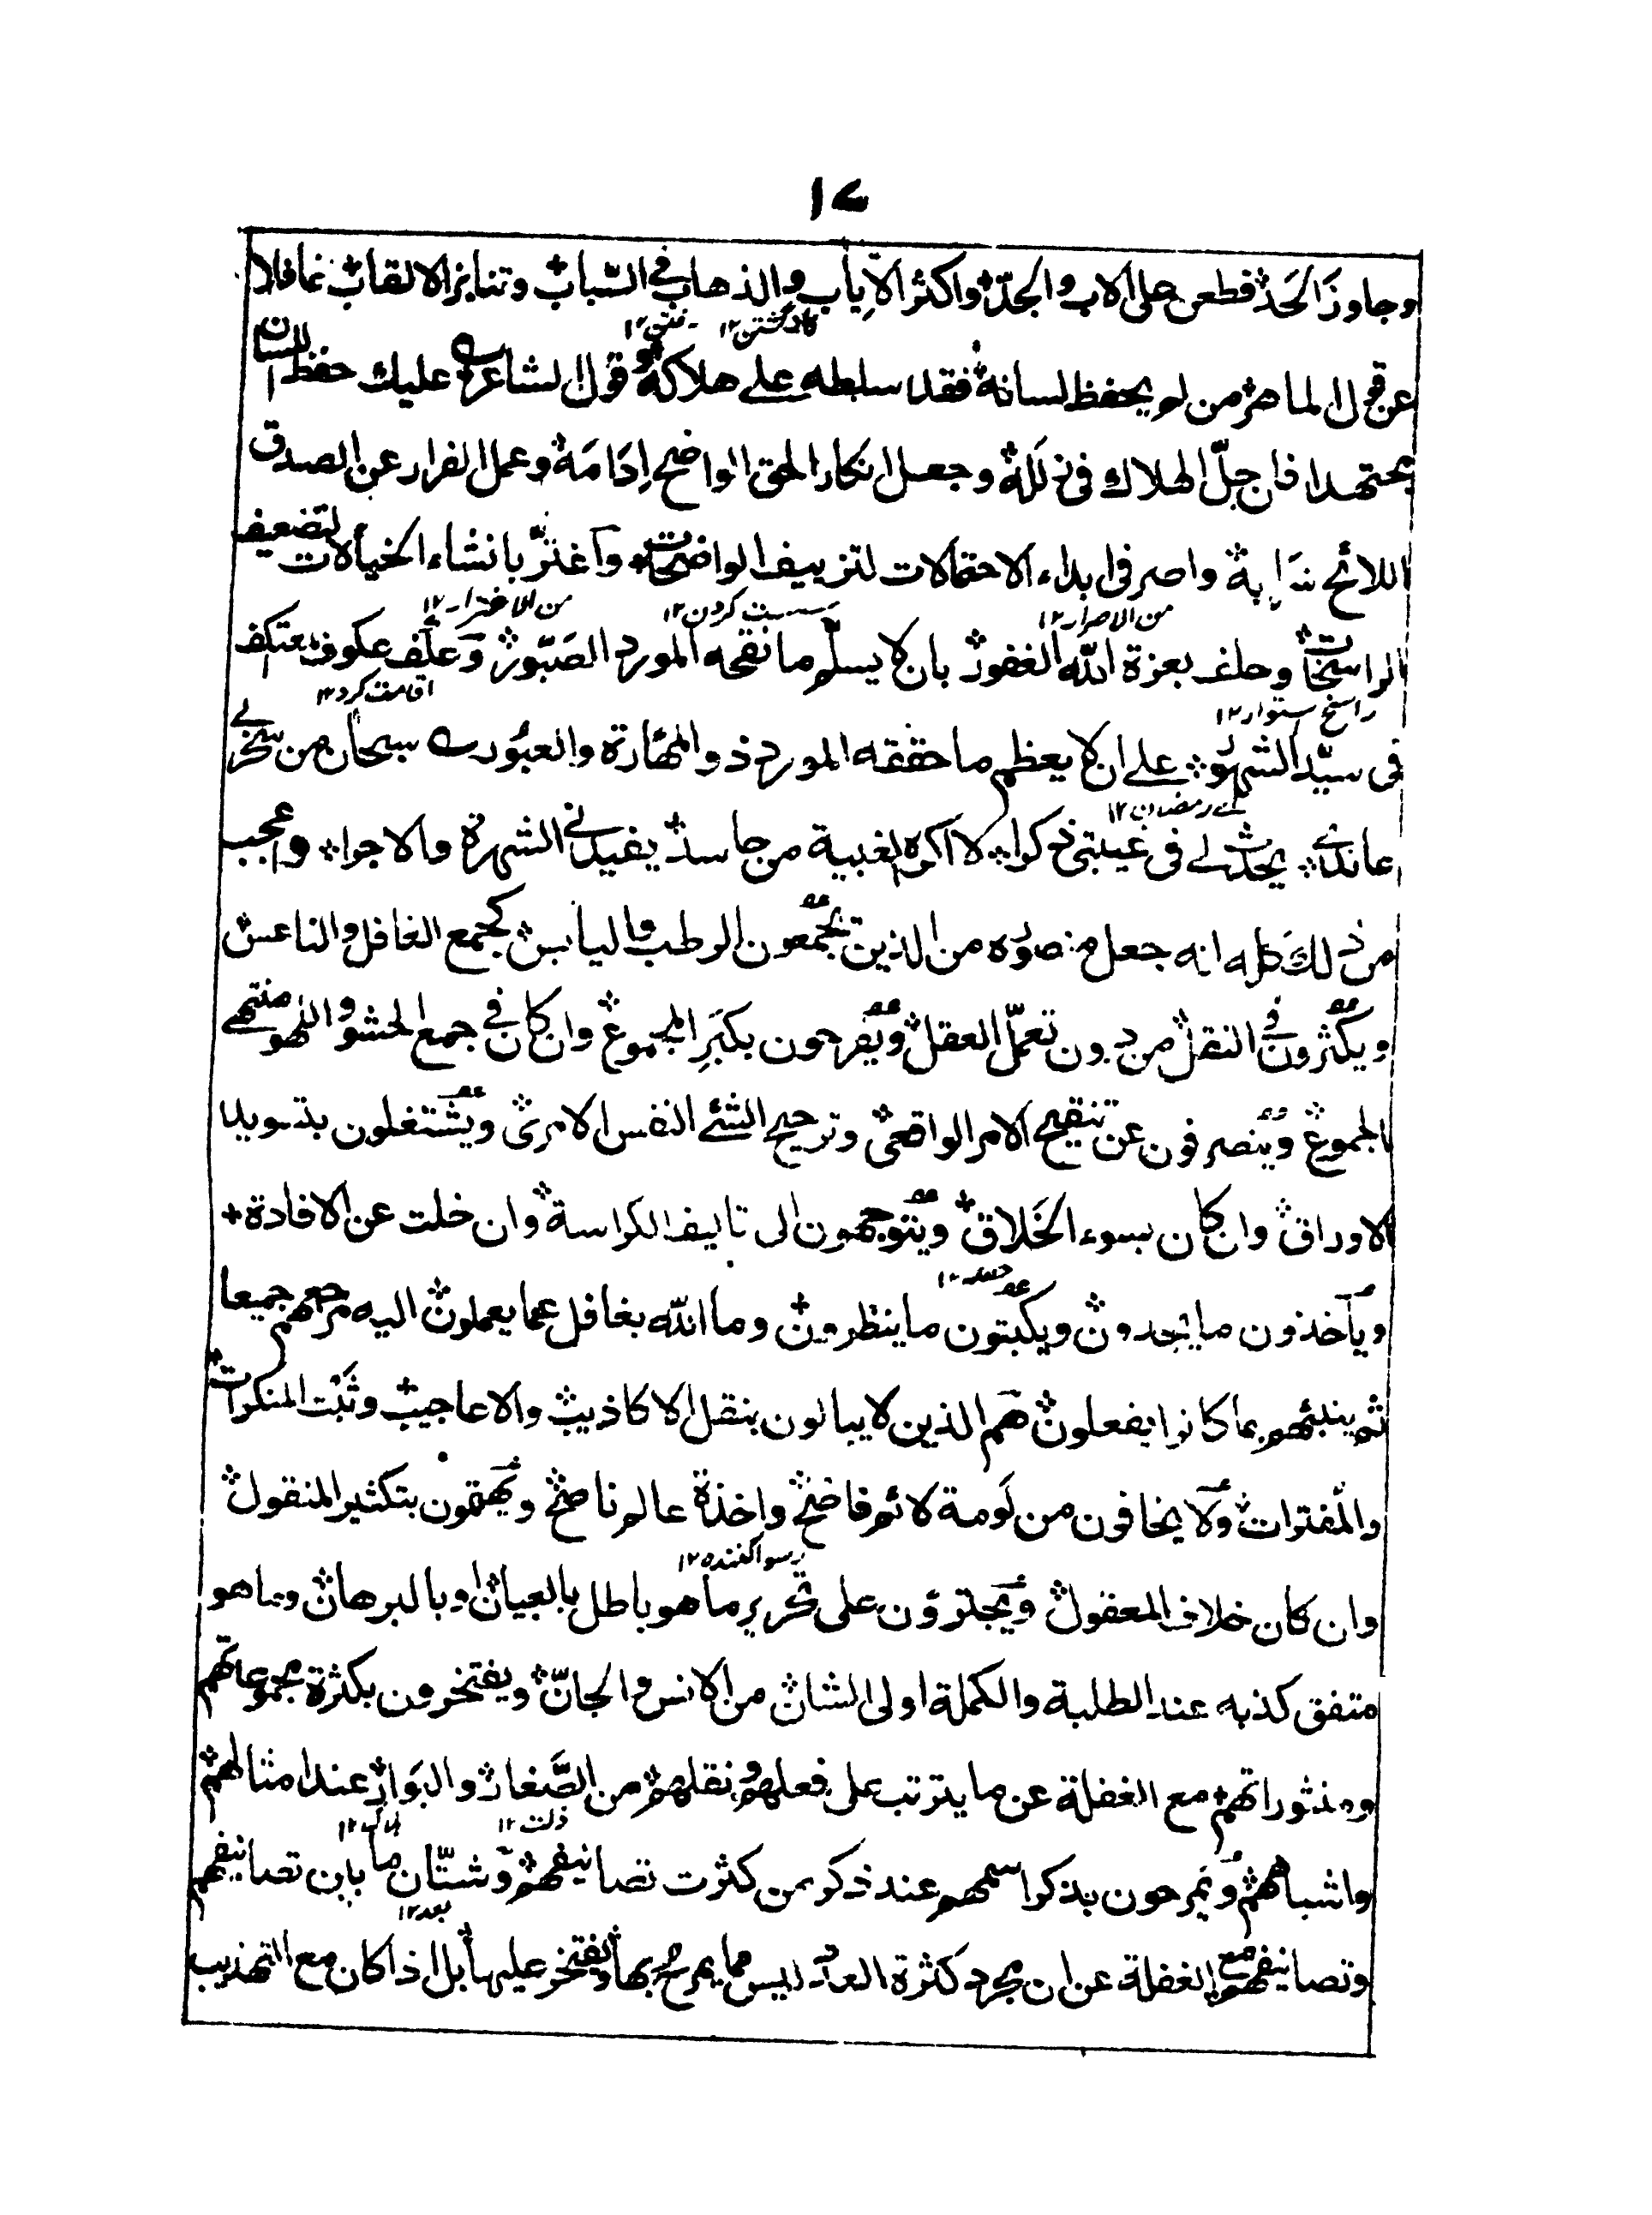 ١٧
وجاوزَ الحَدّ فطعن على الاب والجدّ واكثر الاِياب والذهاب في السّباب وتنابز الالقاب غافلا
عن قول الماهر من لم يحفظ لسانه فقد سلطه على هلاكه وقول الشاعر عليك حفظ اللسان
مجتهدا فان جلّ الهلاك فى زلله وجعل انكار الحق الواضح اِدَامَه وعمل الفرار عن الصدق
اللائح واصر فى ابداء الاحتمالات لتزييف الواضحات واغترّ بانشاء الخيالات لتضعيف
من الاصرار ١٢ سست كردن ١٢ من الاغترار ١٢
الراسخات وحلف بعزة الله الغفور بان لا يسلّم ما نقحه المورد الصَبّور وعلف عكوف معتكف
راسخ استوار ١٢ اقامت كرد ١٢
فى سيّد الشهور على ان لا يعظم ما حققه المورد ذو المهارة والعبُور سبحان من سخر لى
اے رمضان ١٢
عاندى يحدث لى فى غيبتى ذكرا لا اكره الغيبة من حاسد يفيدنى الشهرة والاجرا واعجب
من ذلك كله انه جعل منصوره من الذين يجمعون الرطب واليابس كجمع الغافل والناعس
ويكثرون فى النقل من دون تعمّل العقل ويفرحون بكبَرِ المجموع وان كان فى جمع الحشو واللهو منتهى
الجموع وينصرفون عن تنقيح الامر الواقعى وترجيح الشئ النفس الامرى ويشتغلون بتسويد
الاوراق وان كان بسوء الخَلاق ويتوجهون الى تاليف الكراسة وان خلت عن الافادة
وياخذون ما يجدون ويكتبون ما ينظرون وما الله بغافل عما يعملون اليه مرجعهم جميعا
ثم ينبئهم بما كانوا يفعلون هم الذين لا يبالون بنقل الاكاذيب والاعاجيب وثَبْت المنكرات
والمفترات ولا يخافون من لَومة لائم فاضح واخذة عالم ناصح ويهتمون بتكثير المنقول
رسوا كننده ١٢
وان كان خلاف المعقول ويجترؤن على تحرير ما هو باطل بالعيان او بالبرهان وما هو
متفق كذبه عند الطلبة والكملة اولى الشان من الانس والجانّ ويفتخرون بكثرة مجموعاتهم
ومنثوراتهم مع الغفلة عن ما يترتب على فعلهم ونقلهم من الصَّغار والبَوار عند امثالهم
ذلت ١٢ هلاك ١٢
واشباههم ويمرحون بذكر اسمهم عند ذكر من كثرت تصانيفهم وشتّان ما بين تصانيفهم
بعد ١٢
وتصانيفهم مع الغفلة عن ان مجرد كثرة العدد ليس مما يمرح بها ويفتخر عليها بل اذا كان مع التهذيب